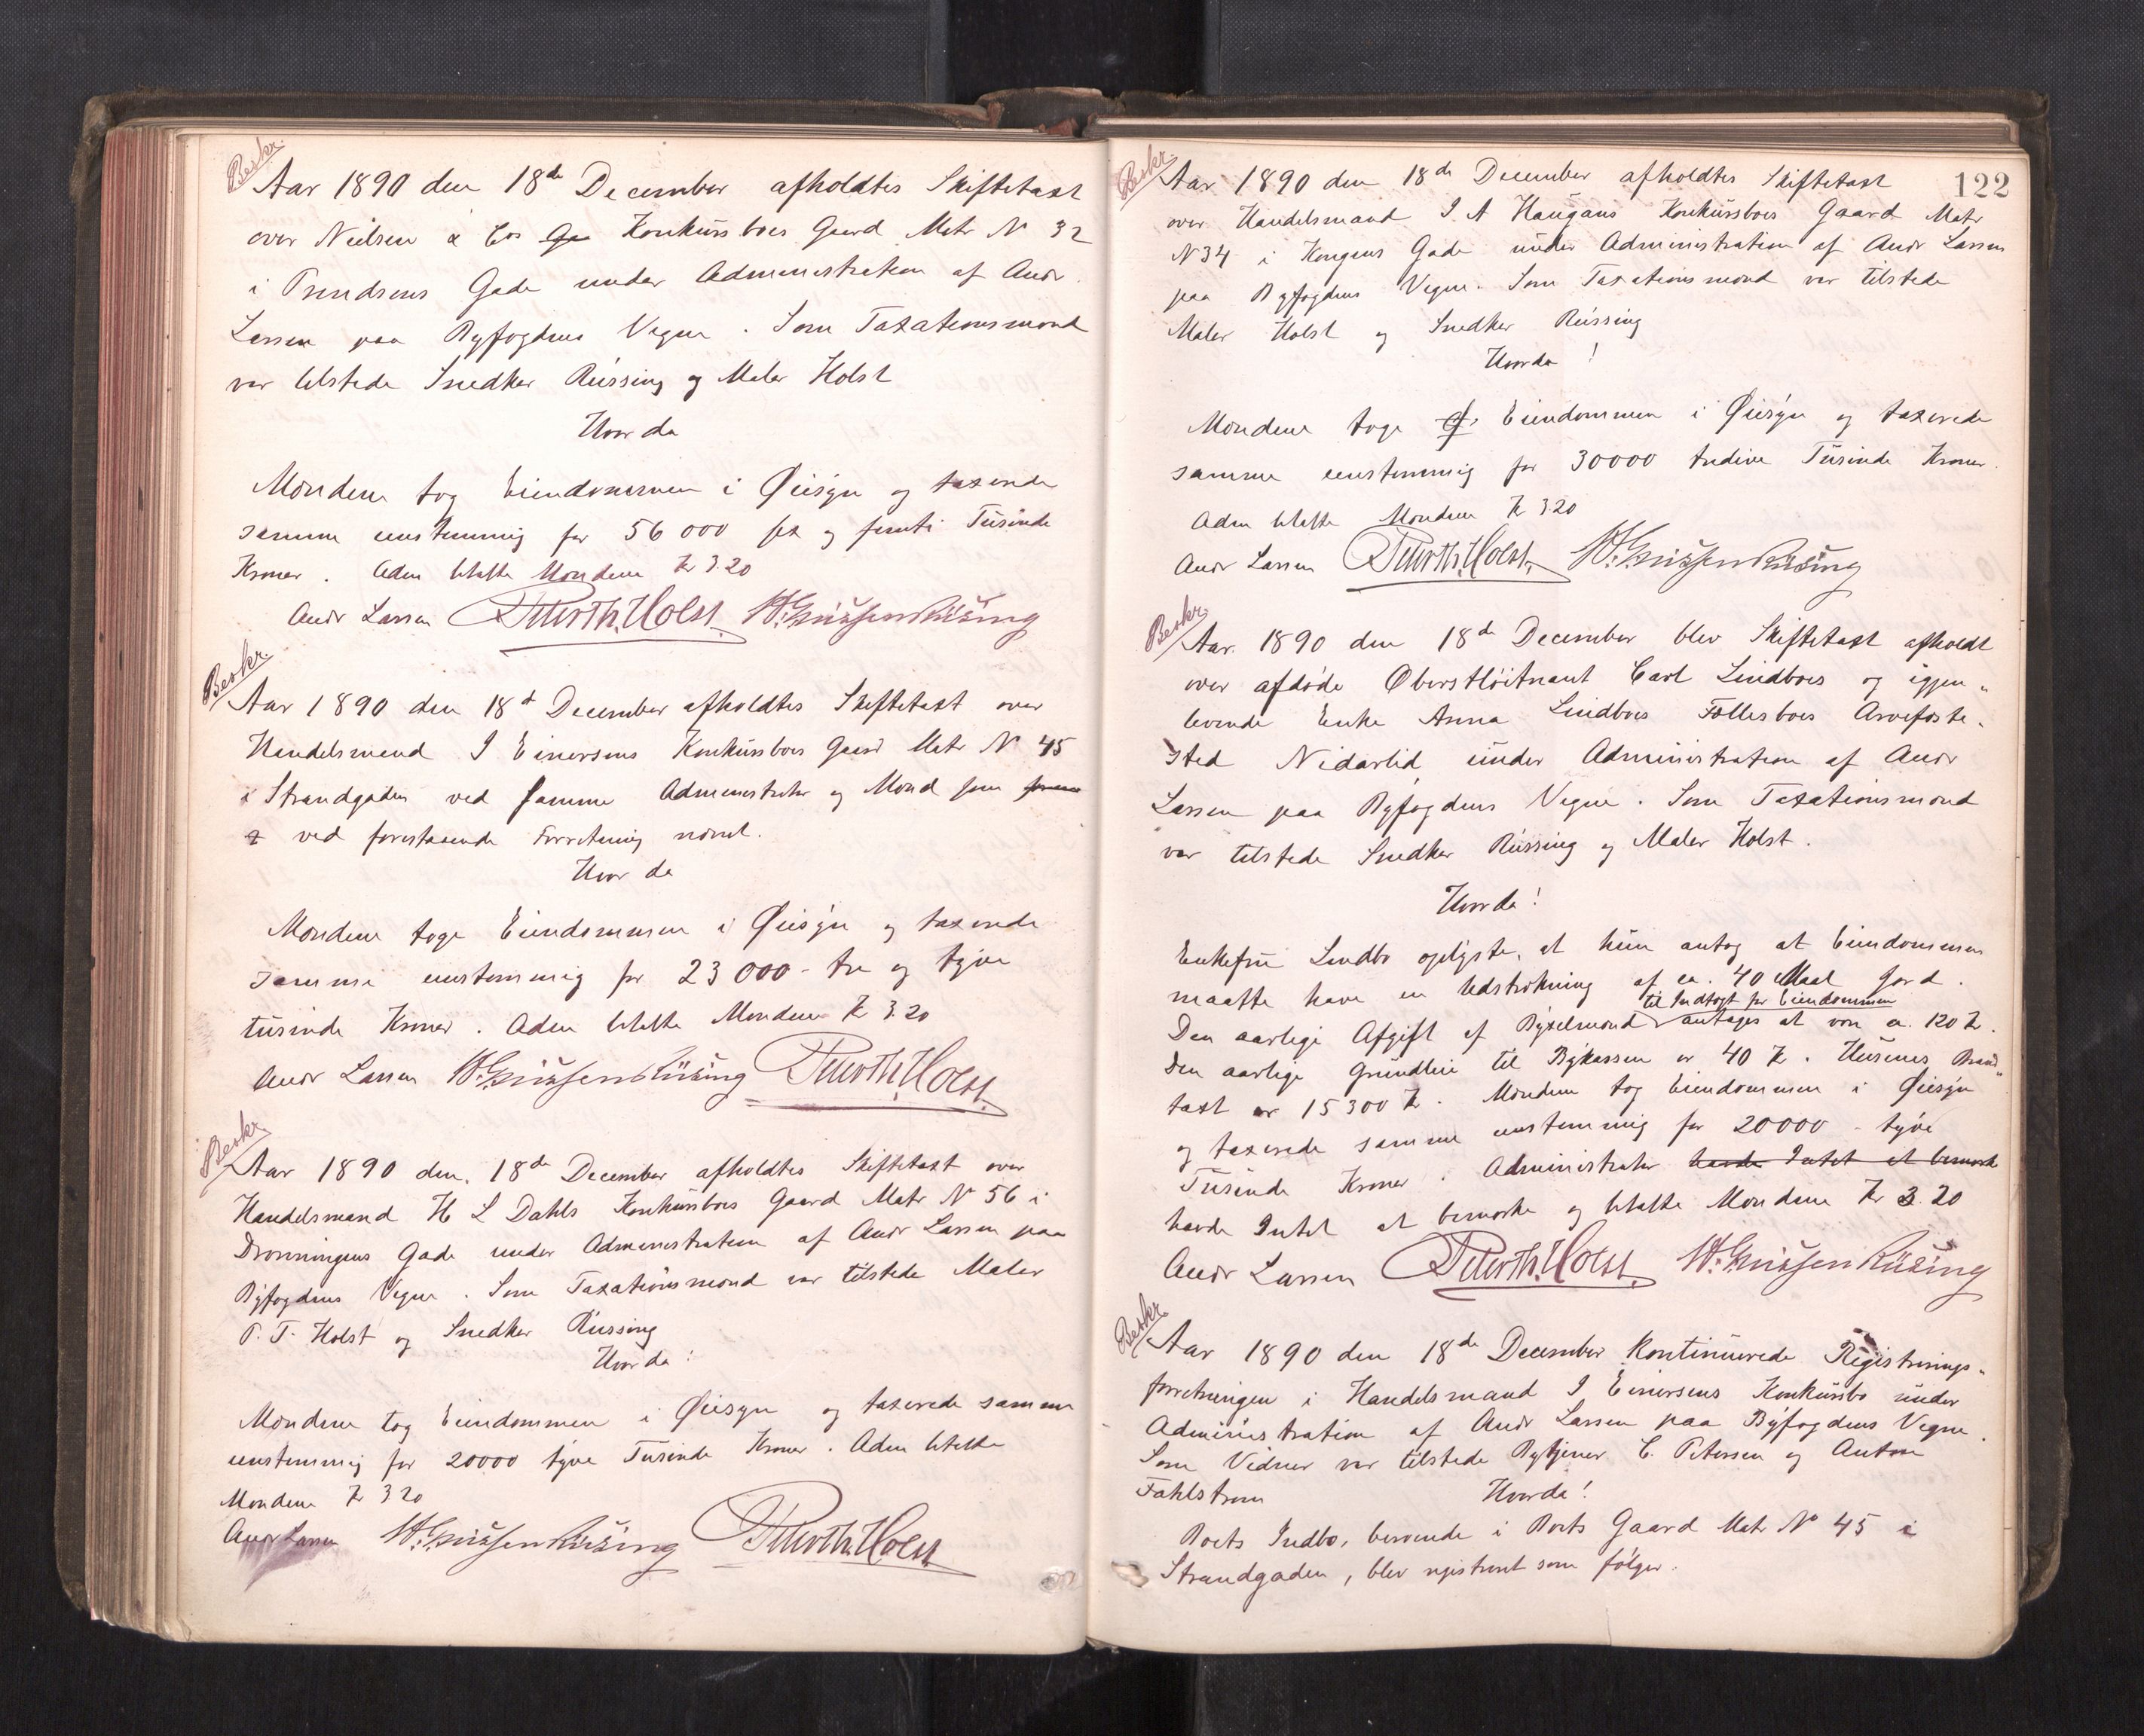 Beskr.
Aar 1890 den 18de December afholdtes Skiftetaxt
over Nielsen & Cos Ga Konkursboes Gaard Matr N 32
i Prindsens Gade under Administration af Andr
Larsen paa Byfogdens Vegne. Som Taxationsmænd
var tilstede Snedker Rüssing og Maler Holst
Hvor da
Mændene tog Eiendommen i Øiesyn og taxerede
samme enstemmig for 56000 sex og femti Tusinde
Kroner. Adm betalte Mændene Kr 3.20
Andr Larsen Peter Th. Holst. W. Grüssen Rüsing
Beskr.
Aar 1890 den 18d December afholdtes Skiftetaxt over
Handelsmand I Einersens Konkursboes Gaard Matr N 45
i Strandgaden ved samme Administrator og Mænd som
ved forestaaende Forretning nævnt.
Hvor da
Mændene toge Eiendommen i Øiesyn og taxerede
samme enstemmig for 23000 - tre og tyve
tusinde Kroner. Adm betalte Mændene Kr 3.20
Andr Larsen W. Grüssen Rüsing Peter Th. Holst.
Beskr.
Aar 1890 den 18de December afholdtes Skiftetaxt over
Handelsmand H L Dahls Konkursboes Gaard Matr N 56 i
Dronningens Gade under Administration af Andr Larsen paa
Byfogdens Vegne. Som Taxationsmænd var tilstede Maler
P. T. Holst og Snedker Rüssing
Hvor da:
Mændene tog Eiendommen i Øiesyn og taxerede samme
enstemmig for 20000 tyve Tusinde Kroner. Adm betalte
Mændene Kr 3 20
Andr Larsen W. Grüssen Rüsing Peter Th. Holst
122
Beskr.
Aar 1890 den 18de December afholdtes Skiftetaxt
over Handelsmand I A Haugans Konkursboes Gaard Matr
N 34 i Kongens Gade under Administration af Andr Larsen
paa Byfogdens Vegne. Som Taxationsmænd var tilstede
Maler Holst og Snedker Rüssing
Hvorda!
Mændene toge Eiendommen i Øiesyn og taxerede
samme enstemmig for 30000 tredive Tusinde Kroner.
Adm betalte Mændene Kr 3 20
Andr Larsen Peter Th. Holst. W. Grüssen Rüsing
Beskr.
Aar 1890 den 18de December blev Skiftetaxt afholdt
over afdøde Oberstløitnant Carl Lindboes og igjen„
levende Enke Anna Lindboes Fællesboes Arvefæste„
sted Nidarlid under Administration af Andr
Larsen paa Byfogdens Vegne. Som Taxationsmænd
var tilstede Snedker Rüssing og Maler Holst.
Hvorda!
Enkefru Lindbo oplyste, at hun antog at Eiendommen
maatte have en Udstrækning af ca. 40 Maal Jord.
til Indtægt for Eiendommen
Den aarlige Afgift af Bÿxelmænd antages at være ca. 120 Kr.
Den aarlige Grundleie til Bykassen er 40 Kr. Husenes Brand„
taxt er 15300 Kr. Mændene tog Eiendommen i Øiesyn
og taxerede samme enstemmig for 20000 - tyve
Tusinde Kroner. Administrator havde Intet at bemærke
havde Intet at bemærke og betalte Mændene Kr 3.20
Andr Larsen Peter Th. Holst. W. Grüssen Rüsing
Beskr.
Aar 1890 den 18de December kontinuerede Registrerings„
forretningen i Handelsmand I Einersens Konkursbo under
Administration af Andr Larsen paa Byfogdens Vegne.
Som Vidner var tilstede Bytjener C. Petersen og Anton
Fahlstrøm Hvorda!
Boets Indbo, beroende i Boets Gaard Matr No 45 i
Strandgaden, blev registreret som følger.